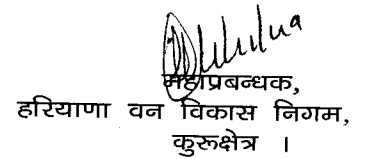 महाप्रबन्धक,
हरियाणा वन विकास निगम,
कुरूक्षेत्र ।